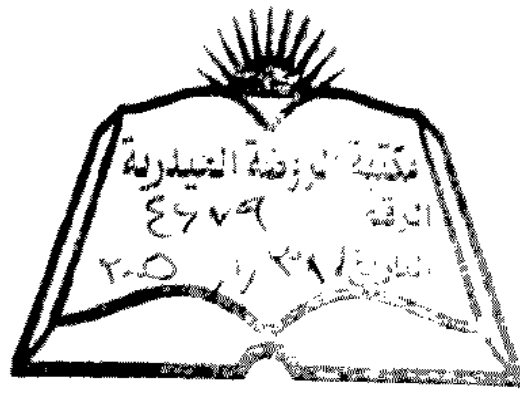 مكتبة الروضة الحيدرية
الرقم ٤٦٧٩
التاريخ